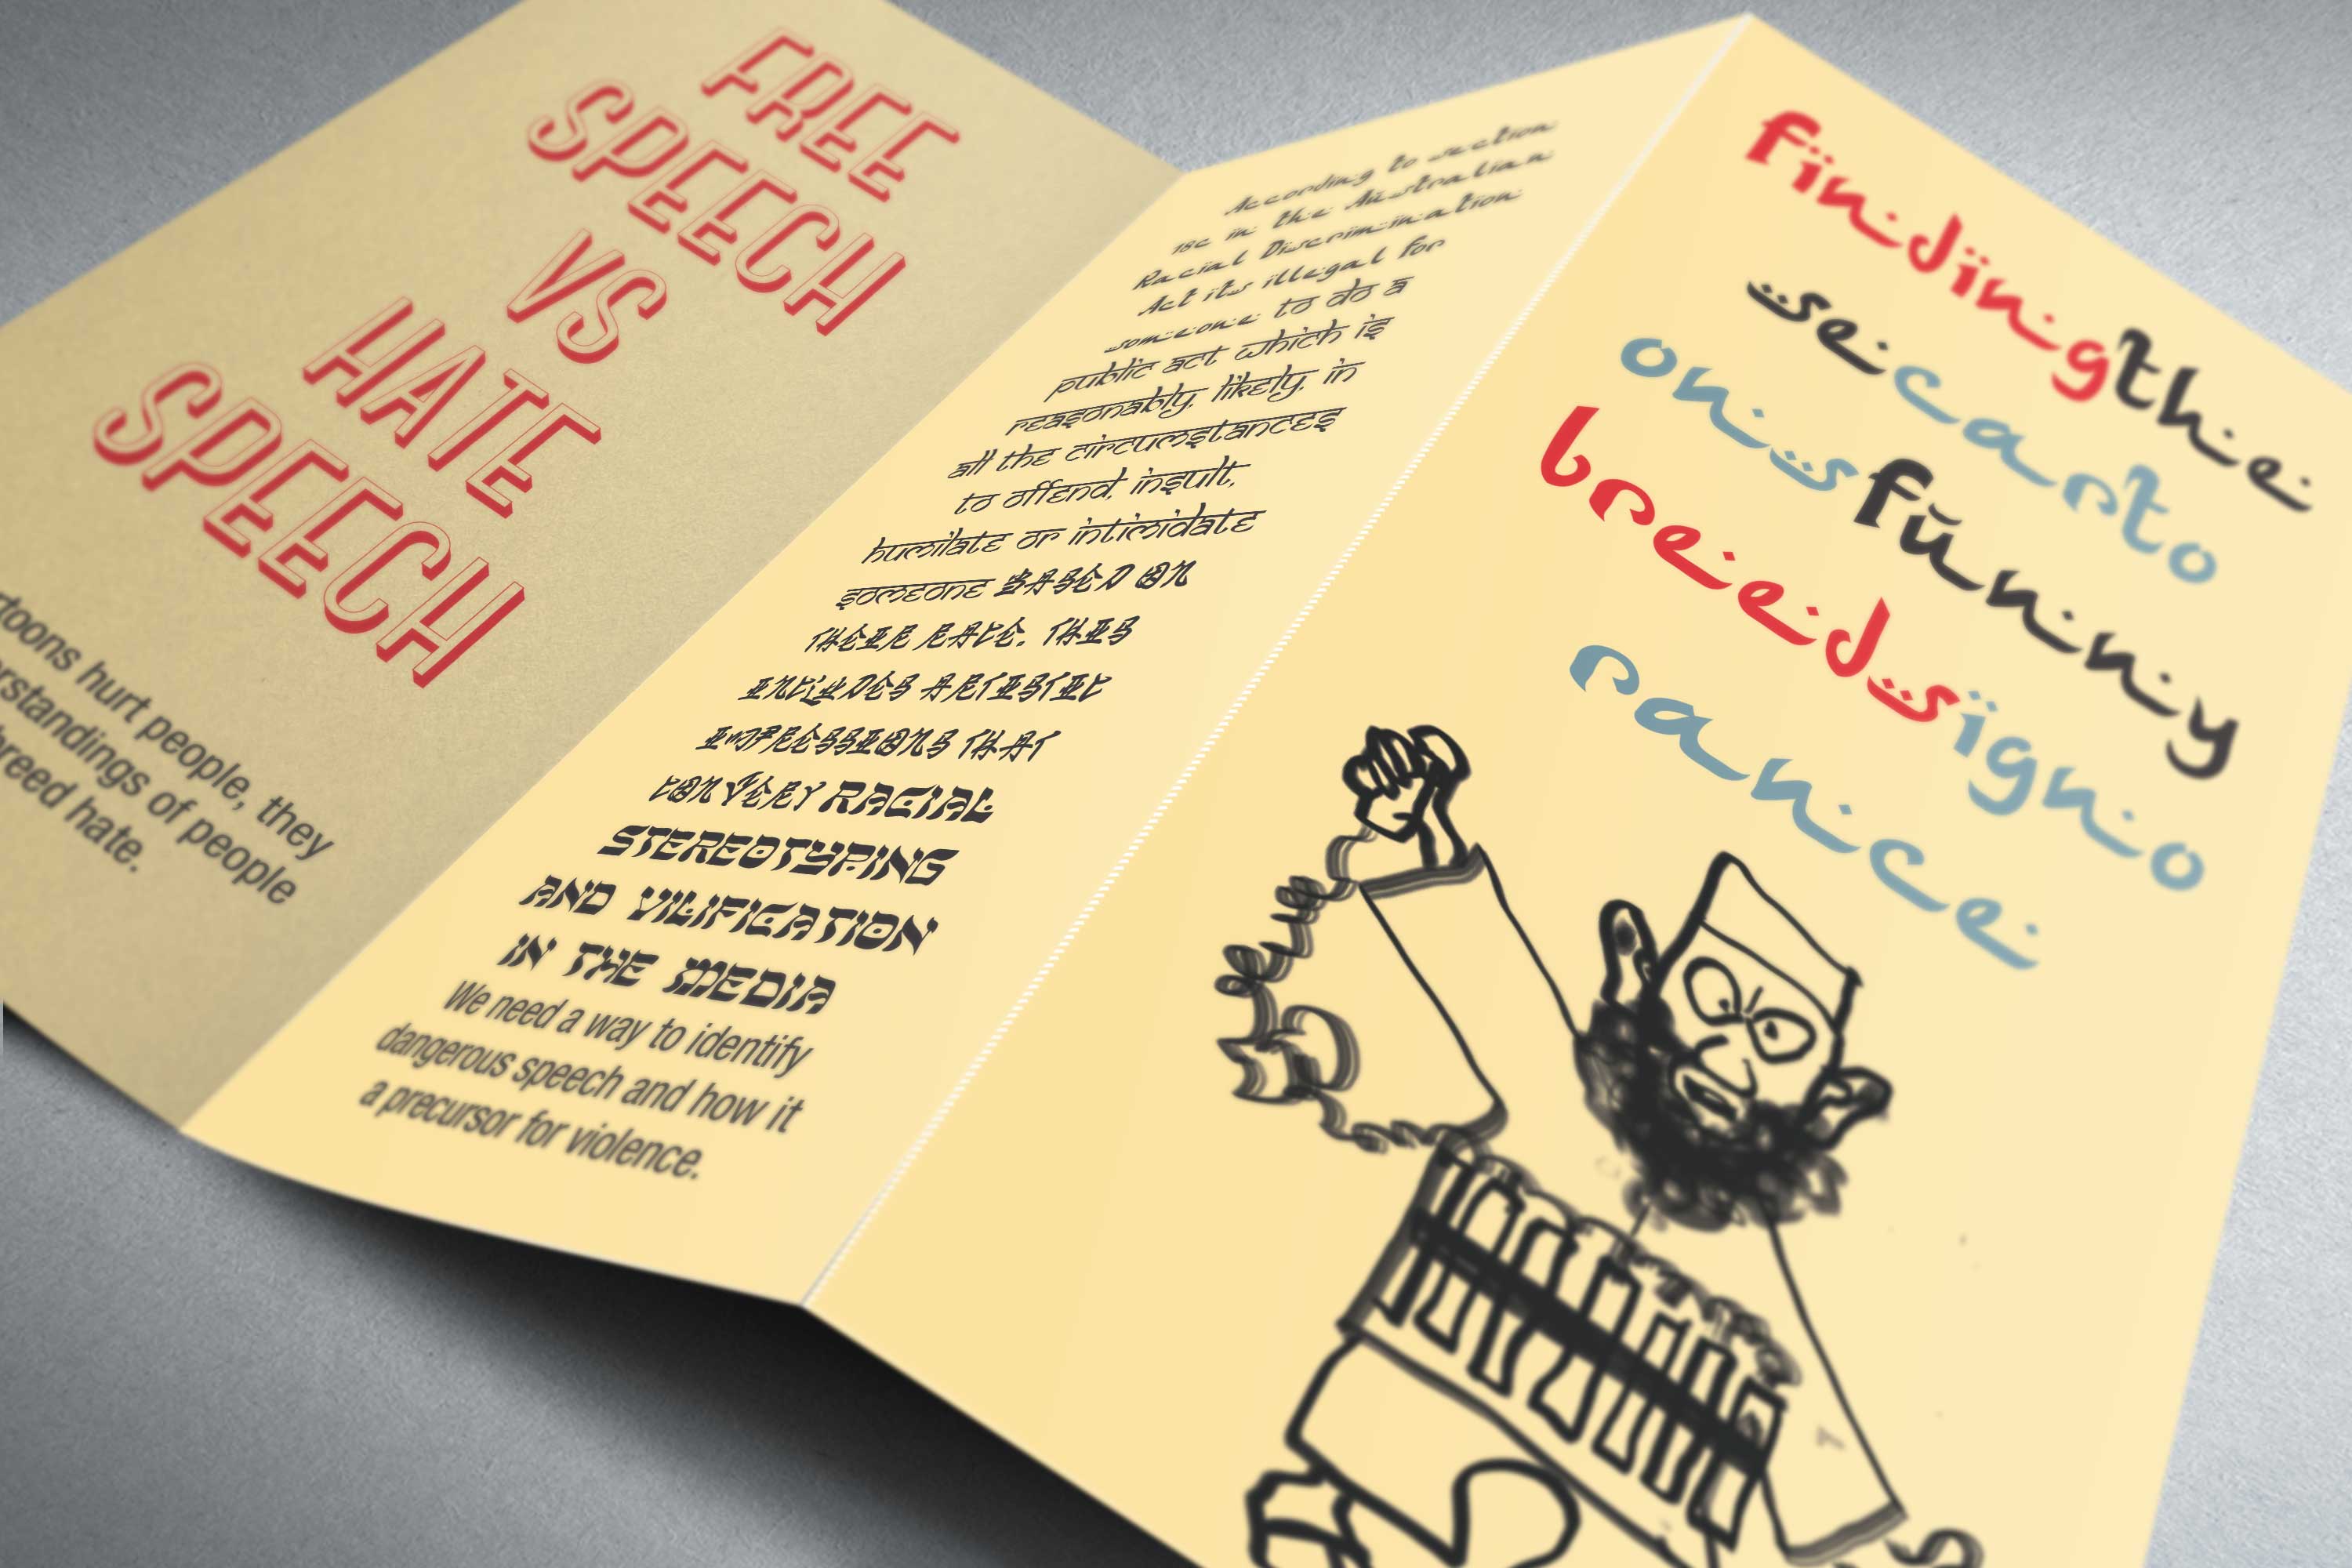 FREE
SPEECH
VS
HATE
SPEECH
rtoons hurt people, they
rstandings of people
breed hate.
According to section
18c in the Australian
Racial Discrimination
Act its illegal for
someone to do a
public act which is
reasonably, likely, in
all the circumstances
to offend, insult,
humilate or intimidate
someone BASED ON
THEIR RACE. THIS
INCLUDES ARTISTIC
IMPRESSIONS THAT
CONVEY RACIAL
STEREOTYPING
AND VILIFICATION
IN THE MEDIA
We need a way to identify
dangerous speech and how it
a precursor for violence.
findingthe
secarto
onsfunny
breedsigno
rance